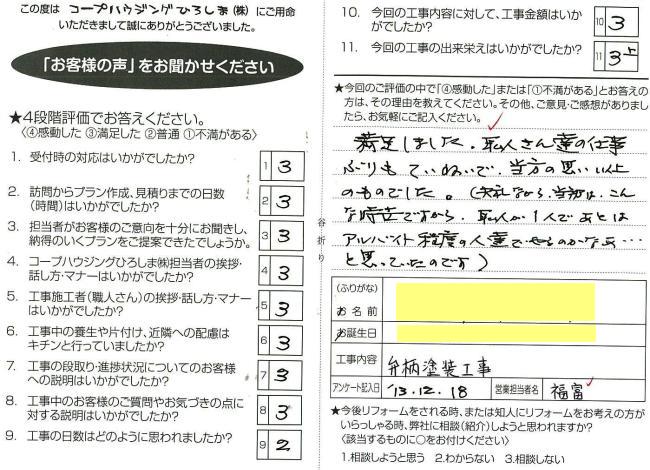 この度は コープハウジングひろしま(株) にご用命
いただきまして誠にありがとうございました。
「お客様の声」をお聞かせください
★4段階評価でお答えください。
〈④感動した ③満足した ②普通 ①不満がある〉
1. 受付時の対応はいかがでしたか?
1 3
2. 訪問からプラン作成、見積りまでの日数
(時間)はいかがでしたか?
2 3
3. 担当者がお客様のご意向を十分にお聞きし、
納得のいくプランをご提案できたでしょうか。
3 3
4. コープハウジングひろしま㈱担当者の挨拶・
話し方・マナーはいかがでしたか?
4 3
5. 工事施工者(職人さん)の挨拶・話し方・マナー
はいかがでしたか?
5 3
6. 工事中の養生や片付け、近隣への配慮は
キチンと行っていましたか?
6 3
7. 工事の段取り・進捗状況についてのお客様
への説明はいかがでしたか?
7 3
8. 工事中のお客様のご質問やお気づきの点に
対する説明はいかがでしたか?
8 3
9. 工事の日数はどのように思われましたか?
9 2
谷折り
10. 今回の工事内容に対して、工事金額はいか
がでしたか?
10 3
11. 今回の工事の出来栄えはいかがでしたか?
11 3上
★今回のご評価の中で「④感動した」または「①不満がある」とお答え
の方は、その理由を教えてください。その他、ご意見・ご感想がありまし
たら、お気軽にご記入ください。
満足しました。職人さん達の仕事
ぶりもていねいで、当方の思い以上
のものでした。(失礼ながら、当初は、こん
な時世ですから、職人が1人であとは
アルバイト程度の人達でやるのかなあ…
と思っていたのです)
(ふりがな)
お名前
お誕生日
工事内容
弁柄塗装工事
アンケート記入日
'13.12.18
営業担当者名
福富
★今後リフォームをされる時、または知人にリフォームをお考えの方が
いらっしゃる時、弊社に相談(紹介)しようと思われますか?
〈該当するものに○をお付けください〉
1.相談しようと思う 2.わからない 3.相談しない